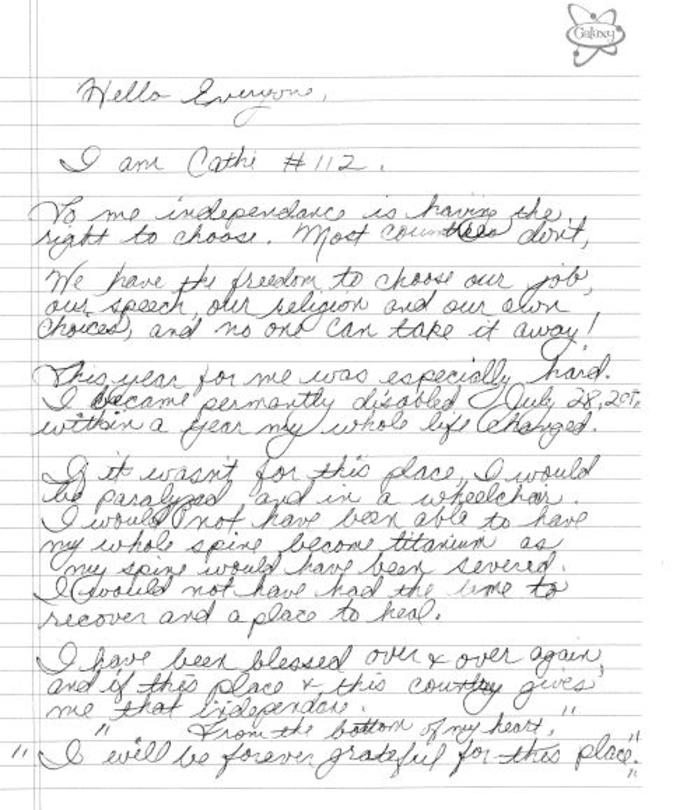 Galaxy
Hello Everyone,
I am Cathi #112.
To me independance is having the
right to choose. Most countries don't,
We have the freedom to choose our job,
our speech, our religion and our own
choices, and no one can take it away!
This year for me was especially hard.
I became permantly disabled July 28,
within a year my whole life changed.
If it wasn't for this place, I would
be paralyzed and in a wheelchair.
I would not have been able to have
my whole spine become titanium as
my spine would have been severed.
I would not have had the time to
recover and a place to heal.
I have been blessed over & over again,
and if this place & this country gives
me that independance.
" From the bottom of my heart, "
" I will be forever grateful for this place."
"